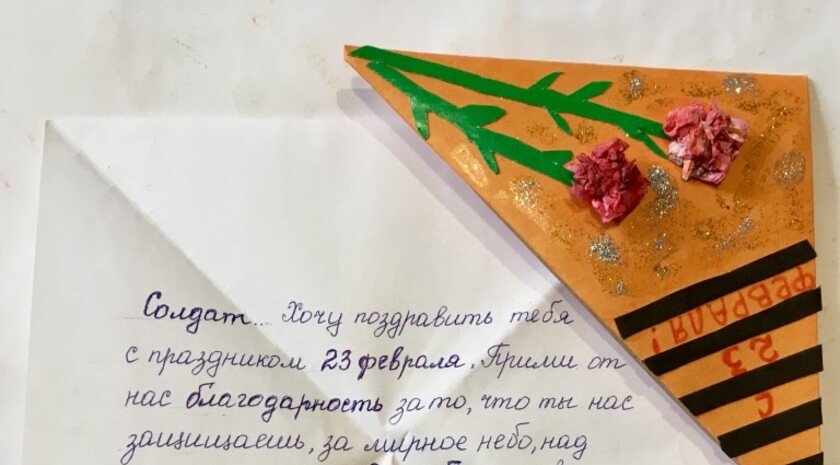 Солдат... Хочу поздравить тебя
с праздником 23 февраля. Прими от
нас благодарность за то, что ты нас
защищаешь, за мирное небо, над
С 23
ФЕВРАЛЯ!